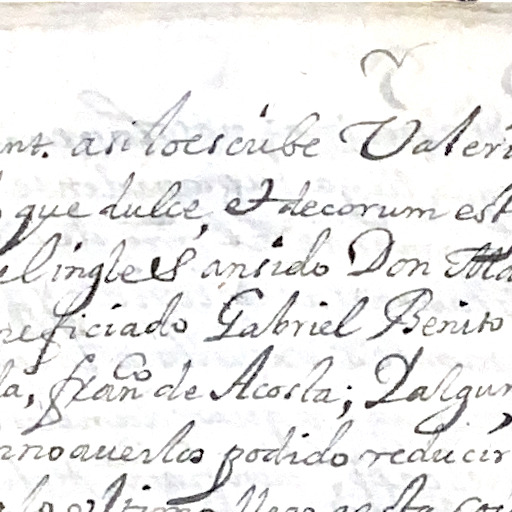 nt. asiloescribe Valeri
que dulce, et decorum est
el ingles an sido Don Ma
neficiado Gabriel Benito
la, franco de Acosta; Yalgun
nnoauerlos podido reducir